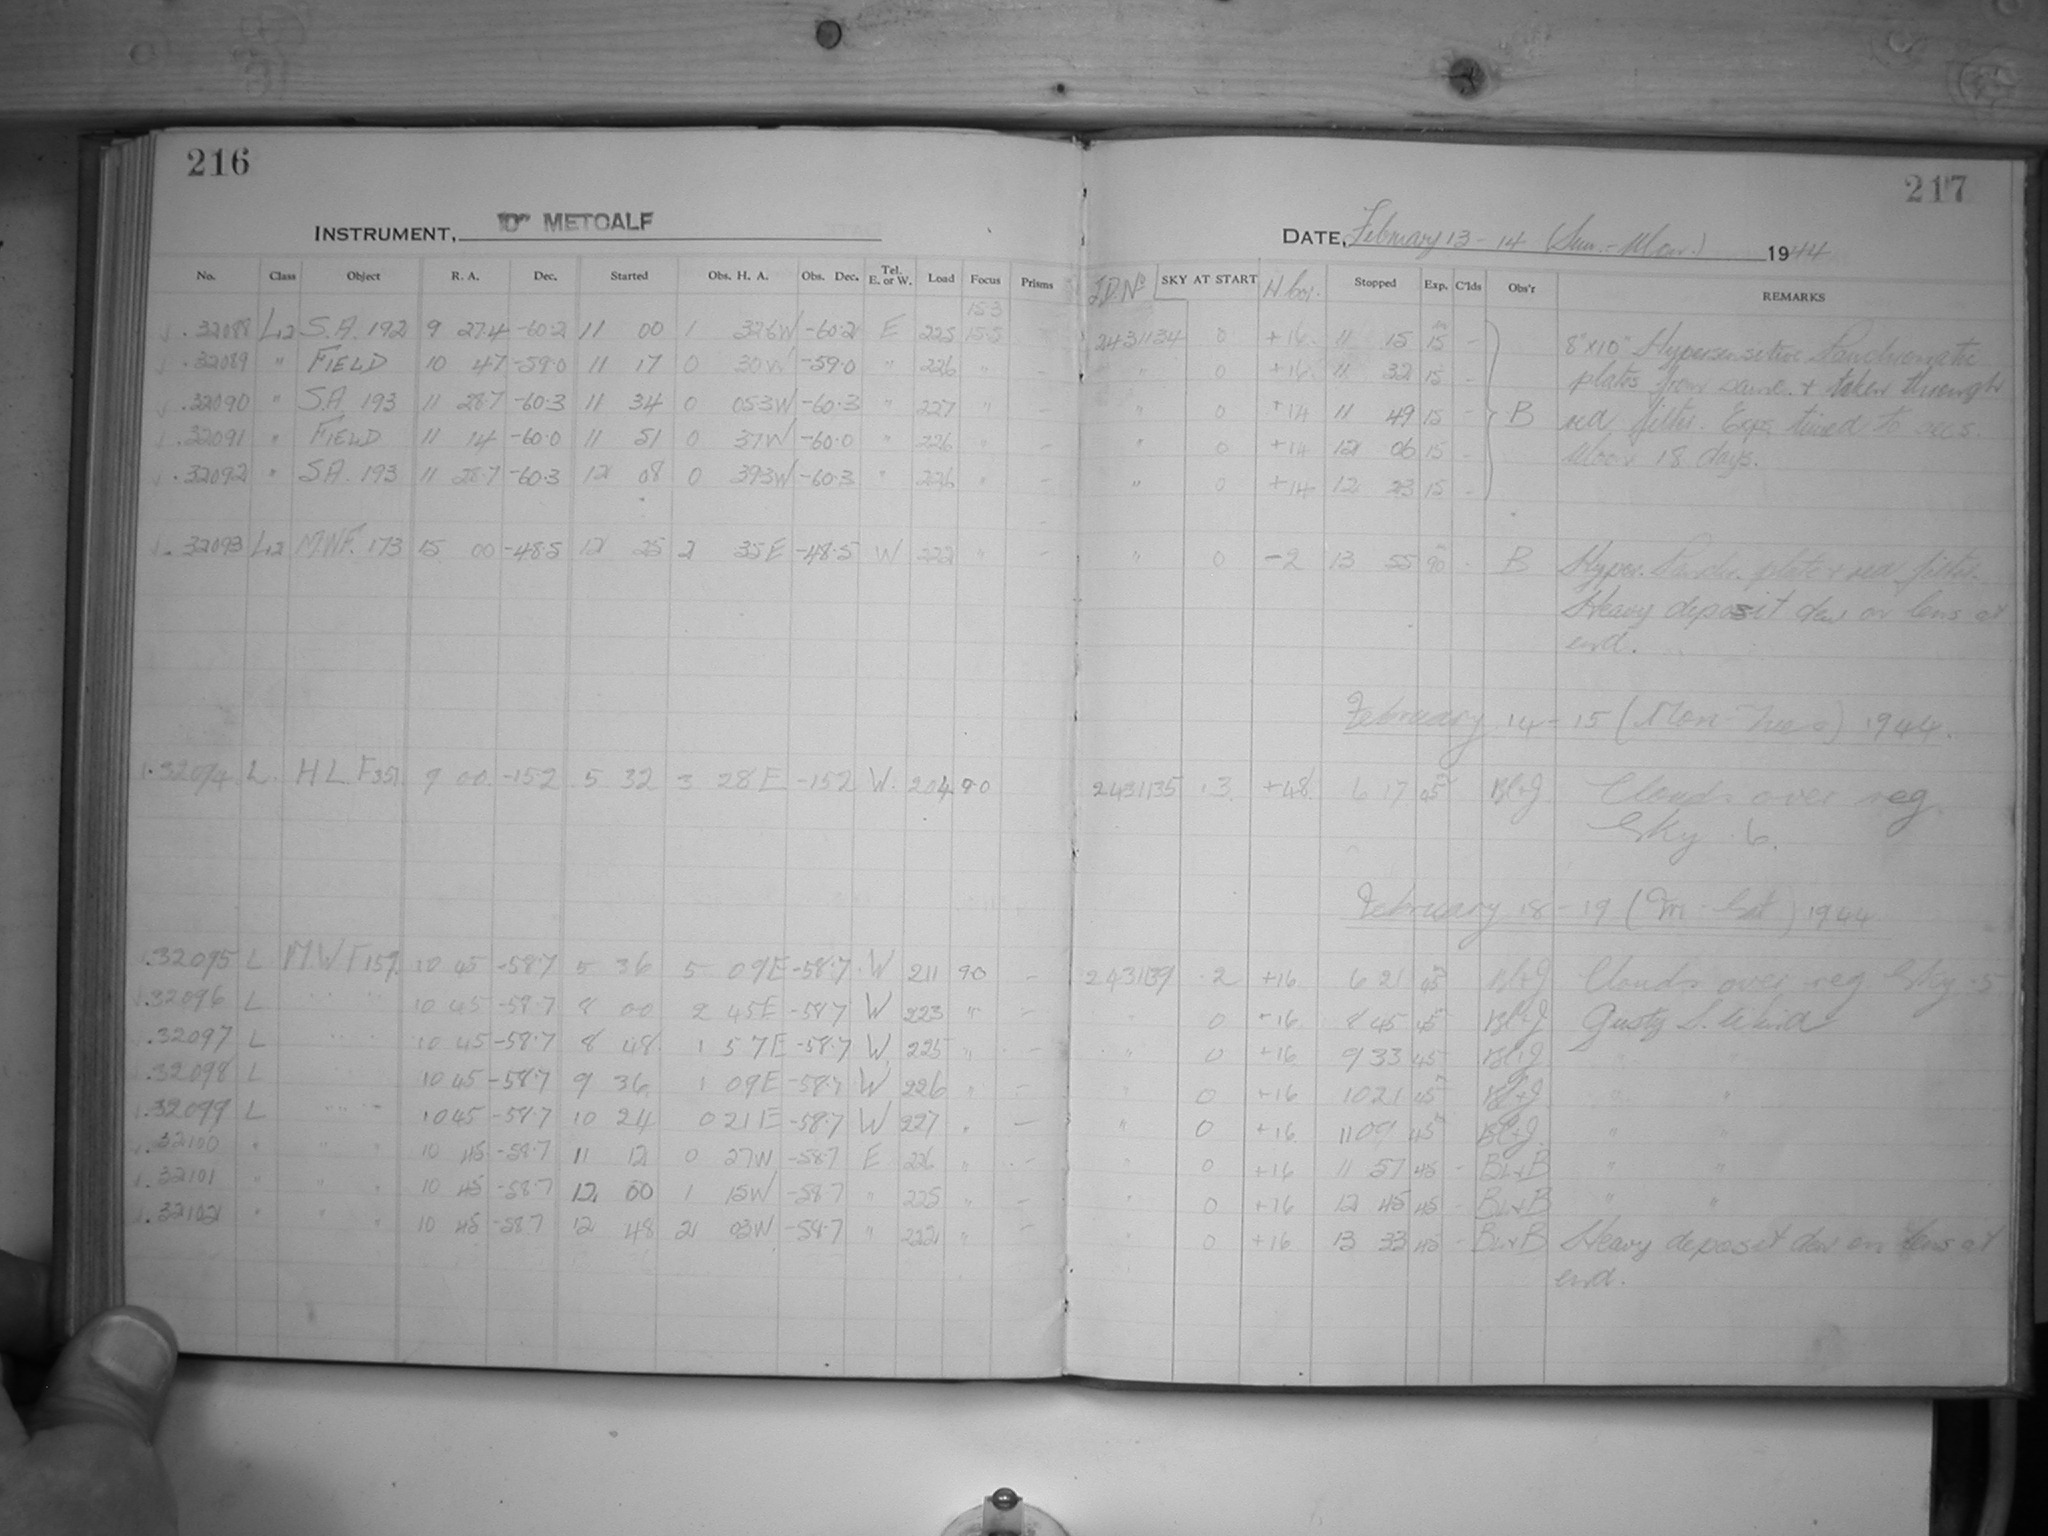 216
217
INSTRUMENT, 10" METCALF
DATE, February 13-14 (Sun.-Mon.) 1944
No. Class Object R. A. Dec. Started Obs. H. A. Obs. Dec. Tel. E. or W. Load Focus Prisms J.D. No SKY AT START H cor. Stopped Exp. C'lds Obs'r REMARKS
15.3
.32088 L12 S.A. 192 9 27.4 -60.2 11 00 1 32.6W -60.2 E 225 15.5 2431134 0 +16 11 15 15 - 8"x10" Hypersensitive Panchromatic
.32089 " FIELD 10 47 -59.0 11 17 0 30W -59.0 " 226 " - " 0 +16 11 32 15 - plates from same + taken through
.32090 " S.A 193 11 28.7 -60.3 11 34 0 05.3W -60.3 " 227 " - " 0 +14 11 49 15 - B red filter. Exps timed to secs.
.32091 " FIELD 11 14 -60.0 11 51 0 37W -60.0 " 226 " - " 0 +14 12 06 15 - Moon 18 days.
.32092 " S.A. 193 11 28.7 -60.3 12 08 0 39.3W -60.3 " 226 " - " 0 +14 12 23 15 -
.32093 L12 M.W.F. 173 15 00 -48.5 12 25 2 35E -48.5 W 222 " - " 0 -2 13 55 90 - B Hyper. Panchr. plate + red filter.
Heavy deposit dew on lens at
end.
February 14-15 (Mon-Tues) 1944.
.32094 L. H L. F351 9 00 -15.2 5 32 3 28E -15.2 W. 204 9.0 2431135 .3 +48 6 17 45 Bl+J. Clouds over reg.
Sky .6.
February 18-19 (Fri-Sat) 1944
.32095 L M.W.F 159 10 45 -58.7 5 36 5 09E -58.7 W 211 9.0 - 2431139 .2 +16 6 21 45 Bl+J Clouds over reg Sky .5
.32096 L " " 10 45 -58.7 8 00 2 45E -58.7 W 223 " - " 0 +16 8 45 45 Bl+J Gusty S. Wind
.32097 L " " 10 45 -58.7 8 48 1 57E -58.7 W 225 " - " 0 +16 9 33 45 Bl+J " "
.32098 L 10 45 -58.7 9 36 1 09E -58.7 W 226 " - " 0 +16 10 21 45 Bl+J " "
.32099 L " " 10 45 -58.7 10 24 0 21E -58.7 W 227 " - " 0 +16 11 09 45 Bl+J. " "
.32100 " " " 10 45 -58.7 11 12 0 27W -58.7 E 226 " - " 0 +16 11 57 45 - BL+B " "
.32101 " " " 10 45 -58.7 12 00 1 15W -58.7 " 225 " - " 0 +16 12 45 45 BL+B " "
.32102 " " 10 45 -58.7 12 48 2 03W -58.7 " 222 " - " 0 +16 13 33 45 - BL+B Heavy deposit dew on lens at
end.